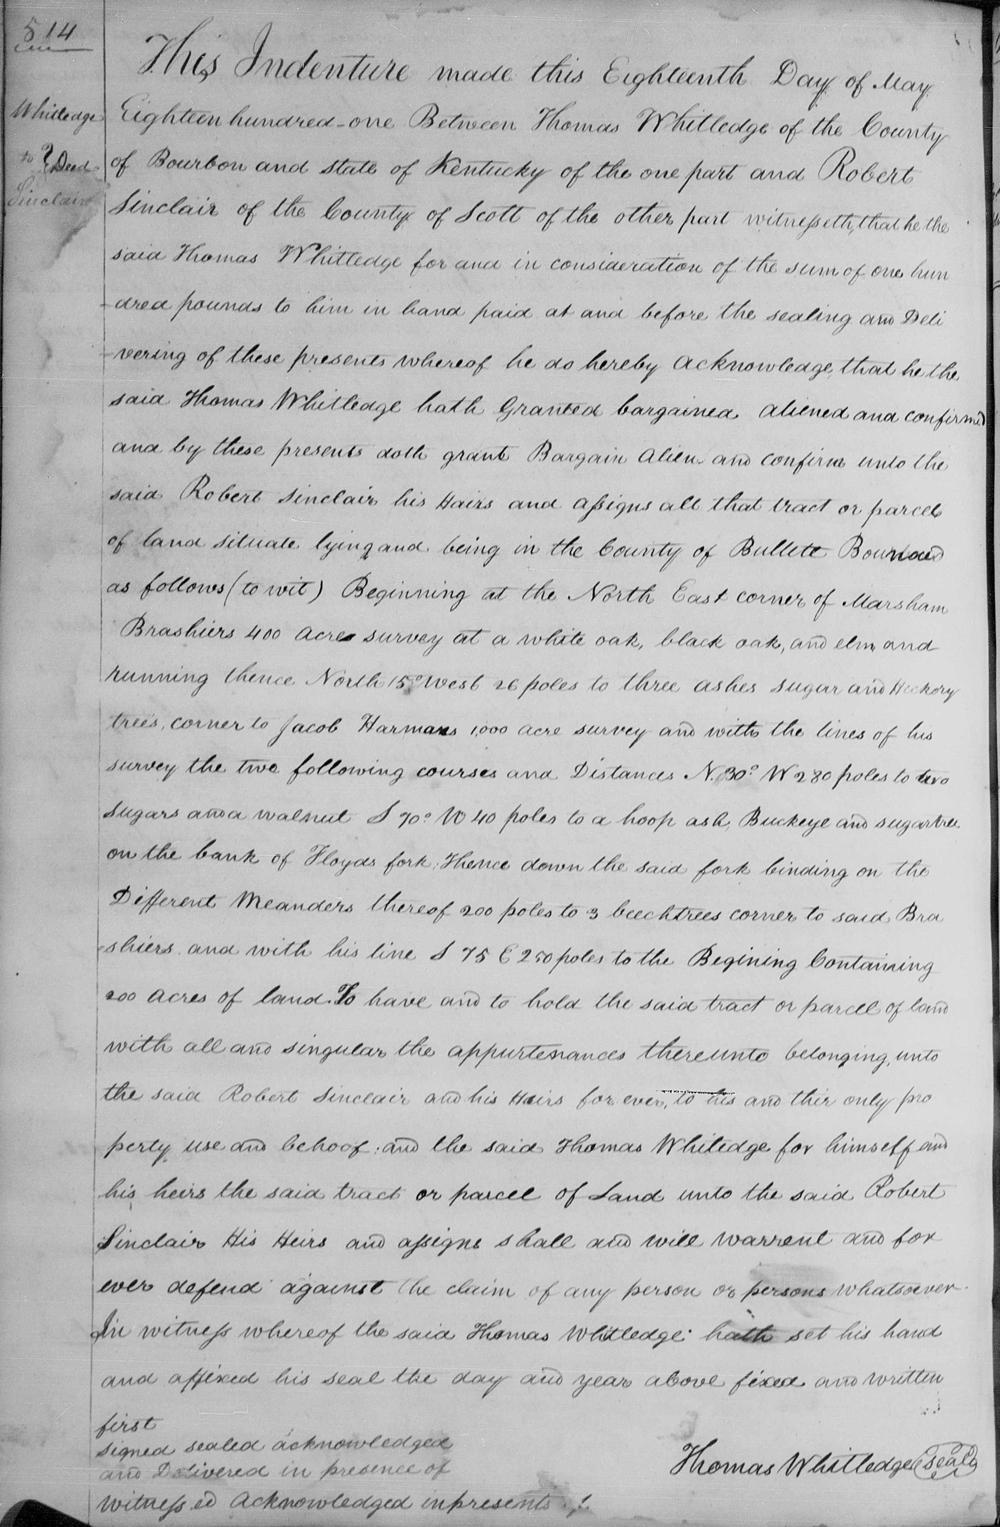 514
Whitledge
to } Deed
Sinclair
This Indenture made this Eighteenth Day of May
Eighteen hundred-one Between Thomas Whitledge of the County
of Bourbon and state of Kentucky of the one part and Robert
Sinclair of the County of Scott of the other part witnesseth, that he the
said Thomas Whitledge for and in consideration of the sum of one hun
-dred pounds to him in hand paid at and before the sealing and Deli
-vering of these presents whereof he do hereby acknowledge, that he the
said Thomas Whitledge hath Granted bargained aliened and confirmed
and by these presents doth grant Bargain Alien and confirm unto the
said Robert Sinclair his Hairs and assigns all that tract or parcel
of land situate lying and being in the County of Bullett Bounded
as follows (to wit) Beginning at the North East corner of Marsham
Brashiers 400 acre survey at a white oak, black oak, and elm and
running thence North 15° West 26 poles to three ashes sugar and Hickory
trees, corner to Jacob Harmans 1,000 acre survey and with the lines of his
survey the two following courses and Distances N. 30° W 280 poles to two
sugars and a walnut S 70° W 40 poles to a hoop ash, Buckeye and sugartree
on the bank of Floyds fork; Thence down the said fork binding on the
Different Meanders thereof 200 poles to 3 beechtrees corner to said Bra
-shiers and with his line S 75 E 250 poles to the Begining Containing
200 acres of land. To have and to hold the said tract or parcel of land
with all and singular the appurtenances thereunto belonging, unto
the said Robert Sinclair and his Heirs for ever, to his and thir only pro
perty use and behoof; and the said Thomas Whitledge for himself and
his heirs the said tract or parcel of Land unto the said Robert
Sinclair His Heirs and assigns shall and will warrent and for
ever defend against the claim of any person or persons whatsoever.
In witness whereof the said Thomas Whitledge hath set his hand
and affixed his seal the day and year above fixed and written
first
signed sealed acknowledged
and Delivered in presence of
Thomas Whitledge (seal)
witness ed Acknowledged in presents